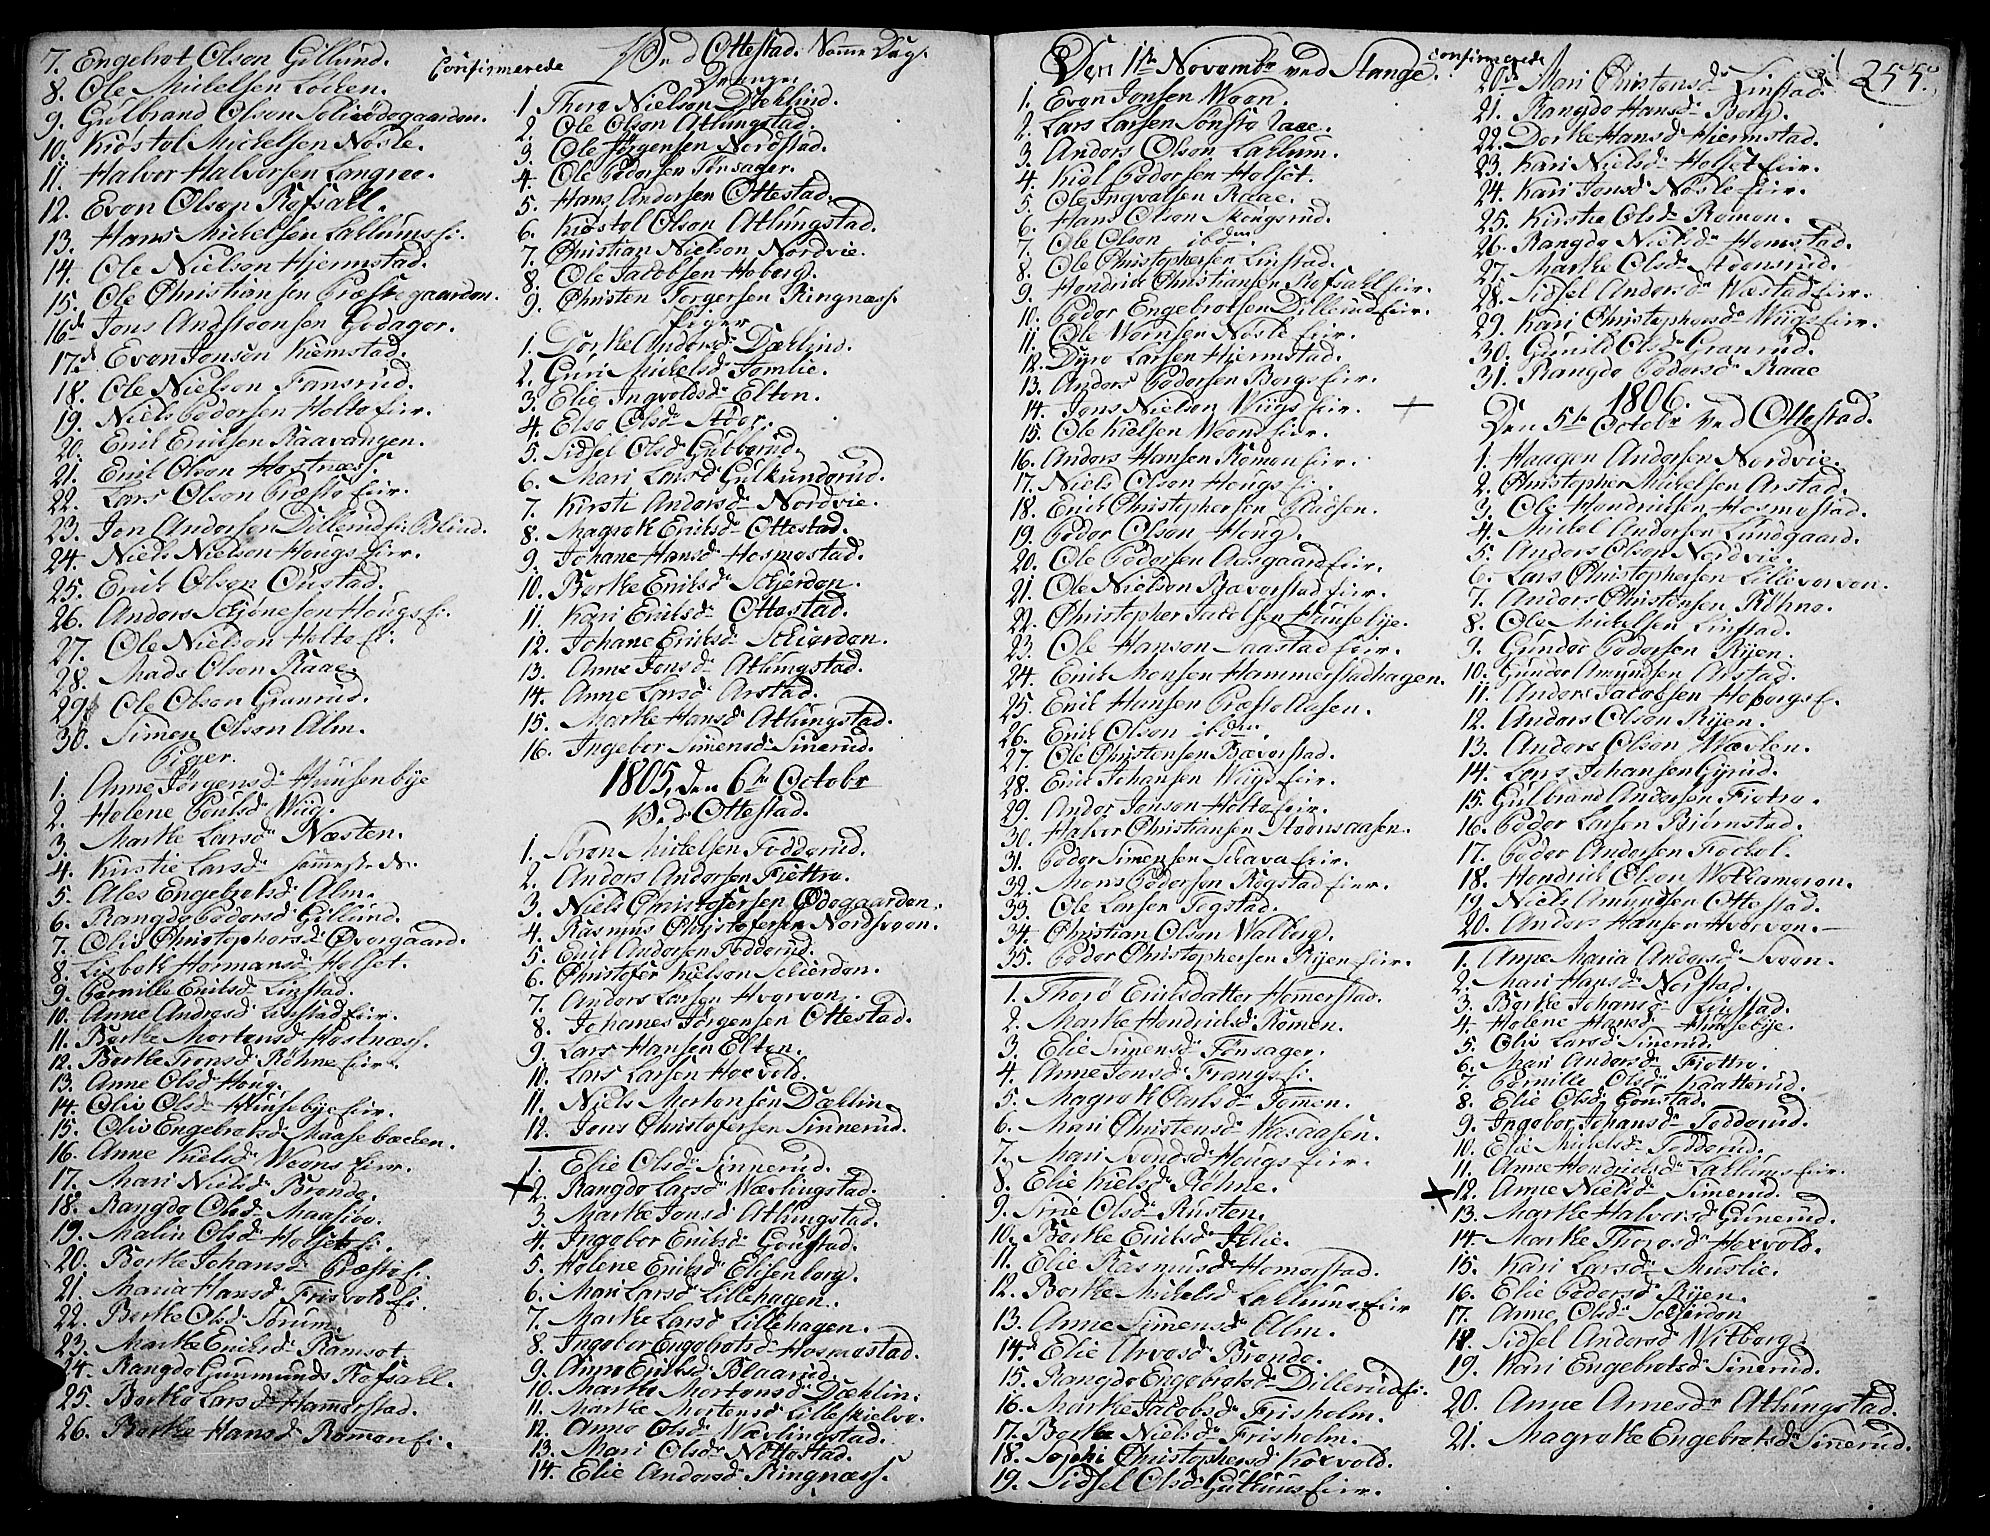 7. Engebret Olsen Gillund.
8. Ole Mickelsen Locken.
9. Gulbrand Olsen
10. Kiøstol Mickelsen Nøsle.
11. Halvor Halvorsen Langroe.
12. Even Olsen Rofsall.
13. Hans Mickelsen Lallumsei.
14. Ole Nielsen Hjermstad.
15. Ole Christiansen Præstegaarden.
16. Jens Andstensen Godager.
17. Even Jonsen Kiemstad.
18. Ole Nielsen Fansrud.
19. Niels Pedersen Holto eier.
20. Emil Ericksen Raavangen.
21. Erick Olsen Hostnæss.
22. Lars Olsen Præsto eier.
23. Jon Andersen Dillerud ei. Blind.
24. Niels Nielsen Hougs eier.
25. Erick Olsen Oustad.
26. Anders Hougs ei.
27. Ole Nielsen Holto ei.
28. Mads Olsen Raae.
29. Ole Olsen Granrud.
30. Simen Olsen Alm.
Piger.
1. Anne Jørgensd. Huusebye
2. Helene Poulsd. Wiig.
3. Marthe Larsd. Næsten.
4. Kirstie Larsd. samme sted.
5. Ales Engebretsd. Alm.
6. Rangdo Pedersd. Gillund.
7. Oliv Christophersd. Øvergaard.
8. Lisbeth Hermansd. Holset.
9. Pernille Ericksd. Linstad.
10. Anne Andersd. Linstad eier.
11. Berthe Mortensd. Hostnæss.
12. Berthe Jonsd. Røhne eier.
13. Anne Olsd. Houg.
14. Oliv Olsd. Huusebye eier.
15. Oliv Engebretsd. Maasebæcken.
16. Anne Kielsd. Weons eier.
17. Mari Nielsd. Brende.
18. Rangdo Olsd. Maasibo.
19. Malin Olsd. Holset ei.
20. Berthe Johansd. Præsto ei.
21. Maria Hansd. Frisvold ei.
22. Berthe Olsd. Sørum.
23. Marthe Ericksd. Ramset.
24. Rangdo Gunmunds. Rofsall.
25. Berthe Larsd. Hammerstad.
26. Berthe Hansd. Romen ei.
Confirmerede
Ved Ottestad. Samme Dag.
Drenge.
1. Thore Nielsen Dæhlind.
2. Ole Olsen Athungstad.
3. Ole Jørgensen Nordstad.
4. Ole Pedersen Fønsager.
5. Hans Andersen Ottestad.
6. Kiøstol Olsen Athungstad.
7. Christian Nielsen Nordvie.
8. Ole Jacobsen Hoberg.
9. Christen Torgersen Ringnæss.
Piger
1. Dorthe Andersd. Dæhlind.
2. Guri Mickelsd. Tomlie.
3. Elie Ingvoldsd. Elton.
4. Else Olsd. Stoor.
5. Sidsel Olsd. Gubberud.
6. Mari Larsd. Gulkunderud.
7. Kirsti Andersd. Nordvie.
8. Magrete Ericksd. Ottestad.
9. Johane Hansd. Hosmestad.
10. Berthe Ericksd. Schierden.
11. Kari Ericksd. Ottestad.
12. Johane Ericksd. Schierden.
13. Anne Jonsd. Athungstad.
14. Anne Larsd. Arstad.
15. Marthe Hansd. Athungstad.
16. Ingebor Simensd. Sinerud.
1805, den 6te Octobr
Ved Ottestad.
1. Søren Mickelsen Todderud.
2. Anders Andersen Fiettre.
3. Niels Christofersen Ødegaarden.
4. Rasmus Christofersen Nordsveen.
5. Erick Andersen Todderud.
6. Christofer Nielsen Schierden.
7. Anders Larsen Hvarven.
8. Johannes Jørgensen Ottestad.
9. Lars Hansen Elton.
10. Lars Larsen Hoxvold.
11. Niels Mortensen Dæhlin.
12. Jens Christofersen Sinnerud.
1. Elie Olsd. Sinnerud.
2. Rangdo Larsd. Wævlingstad.
3. Marthe Jonsd. Athungstad.
4. Ingebor Ericksd. Goustad.
5. Helene Ericksd. Elisenberg.
6. Mari Larsd. Lillehagen.
7. Marthe Larsd. Lillehagen.
8. Ingebor Engebretsd. Hosmestad.
9. Anne Ericksd. Blaarud.
10. Marthe Mortensd. Dæhlin.
11. Marthe Mortensd. Lilleskielve.
12. Anne Olsd. Wævlingstad.
13. Mari Olsd. Nøttestad.
14. Elie Andersd. Ringnæss.
Den 11te Novembr ved Stange. confirmerede
1. Even Jonsen Woon.
2. Lars Larsen Sønsto Raae.
3. Anders Olsen Lallum.
4. Kiøl Pedersen Holset.
5. Ole Ingvalsen Raae.
6. Hans Olsen Skougsrud.
7. Ole Olsen ibdm.
8. Ole Christophersen Linstad.
9. Hendrick Christiansen Rofsall eier.
10. Peder Engebretsen Dillerud eier.
11. Ole Wernsen Nøsle eier.
12. Dyre Larsen Hjermstad.
13. Anders Pedersen Borgs eier.
14. Jens Nielsen Wiigs eier.
15. Ole Kielsen Weons eier.
16. Anders Hansen Romen eier.
17. Niels Olsen Hougs ei.
18. Erick Christophersen Bladsen.
19. Peder Olsen Houg.
20. Ole Pedersen Aasgaard eier.
21. Ole Nielsen Bæverstad eier.
22. Christopher Huusebye.
23. Ole Hansen Saastad eier.
24. Erick Monsen Hammerstadhagen.
25. Erick Hansen Præsto Aasen.
26. Erick Olsen ibdm.
27. Ole Christensen Bæverstad.
28. Erick Johansen Wiigs eier.
29. Ander Jonsen Holto eier.
30. Halvor Christiansen Steensaasen.
31. Peder Simensen Skava eier.
32. Mons Pedersen Rogstad eier.
33. Ole Larsen Togstad.
34. Christian Olsen Walberg.
35. Peder Christophersen Rijen eier.
1. Thorø Ericksdatter Hemerstad.
2. Marthe Hendricksd. Romen.
3. Elie Simensd. Fønsager.
4. Anne Jonsd. Frangs ei.
5. Magrete Carlsd. Tomen.
6. Mari Christensd. Wasaasen.
7. Mari Svendsd. Hougs eier.
8. Elie Kielsd. Røhne.
9. Siri Olsd. Rusten.
10. Berthe Ericksd. Illie.
11. Elie Rasmusd. Homerstad.
12. Berthe Mickelsd. Lallums eier
13. Anne Simensd. Alm.
14. Elie Arvesd. Brende.
15. Rangdo Engebretsd. Dillerud ei.
16. Marthe Jacobsd. Frisholm.
17. Berthe Nielsd. Frisholm.
18. Sophi Christophersd. Koxvold.
19. Sidsel Olsd. Guttums eier.
20. Mari Christensd. Linstad.
255.
21. Rangdo Hansd. Borg.
22. Dorthe Hansd. Hjermstad.
23. Kari Nielsd. Holset eier.
24. Kari Jonsd. Nøsle eier.
25. Kirstie Olsd. Romen.
26. Rangdo Nielsd. Homstad.
27. Marthe Olsd. Steensrud.
28. Sidsel Andersd. Wæstad eier.
29. Kari Christophersd. Wiigs eier.
30. Gunild Olsd. Granrud.
31. Rangdo Pedersd. Raae
1806.
Den 5te Octobr ved Ottestad.
1. Haagen Andersen Nordvie.
2. Christopher Mickelsen Arstad.
3. Ole Hendricksen Hosmestad.
4. Mickel Andersen Lundgaard.
5. Anders Olsen Nordvie.
6. Lars Christophersen Lillevorven.
7. Anders Christensen Røhne.
8. Ole Mickelsen Linstad.
9. Gunder Pedersen Rijen.
10. Gunder Amundsen Arstad.
11. Anders Jacobsen Hobergs ei.
12. Anders Olsen Rijen.
13. Anders Olsen Wævlen.
14. Lars Johansen Gyrud.
15. Gulbrand Andersen Fietre.
16. Peder Larsen Biørnstad.
17. Peder Andersen Fockel.
18. Hendrick Elsen
19. Niels Amundsen Ottestad.
20. Anders Hansen Hvarven.
1. Anne Maria Andersd. Sveen.
2. Mari Hansd. Norstad.
3. Berthe Johansd. Linstad.
4. Helene Hansd. Huusebye.
5. Oliv Larsd. Sinerud.
6. Mari Andersd. Fiettre.
7. Pernille Olsd. Kaatterud.
8. Elie Olsd. Gonstad.
9. Ingebor Johansd. Todderud.
10. Elie Mickelsd. Todderud.
11. Anne Hendricksd. Lallums eier.
12. Anne Nielsd. Sinerud.
13. Marthe Halvorsd. Gunerud.
14. Marthe Thoresd. Hoxvold.
15. Kari Larsd. Muslie.
16. Elie Pedersd. Rijen.
17. Anne Olsd. Schierden
18. Sidsel Andersd. Witberg.
19. Kari Engebretsd. Sinerud.
20. Anne Arnesd. Athungstad.
21. Magrethe Engebretsd. Sinnerud.